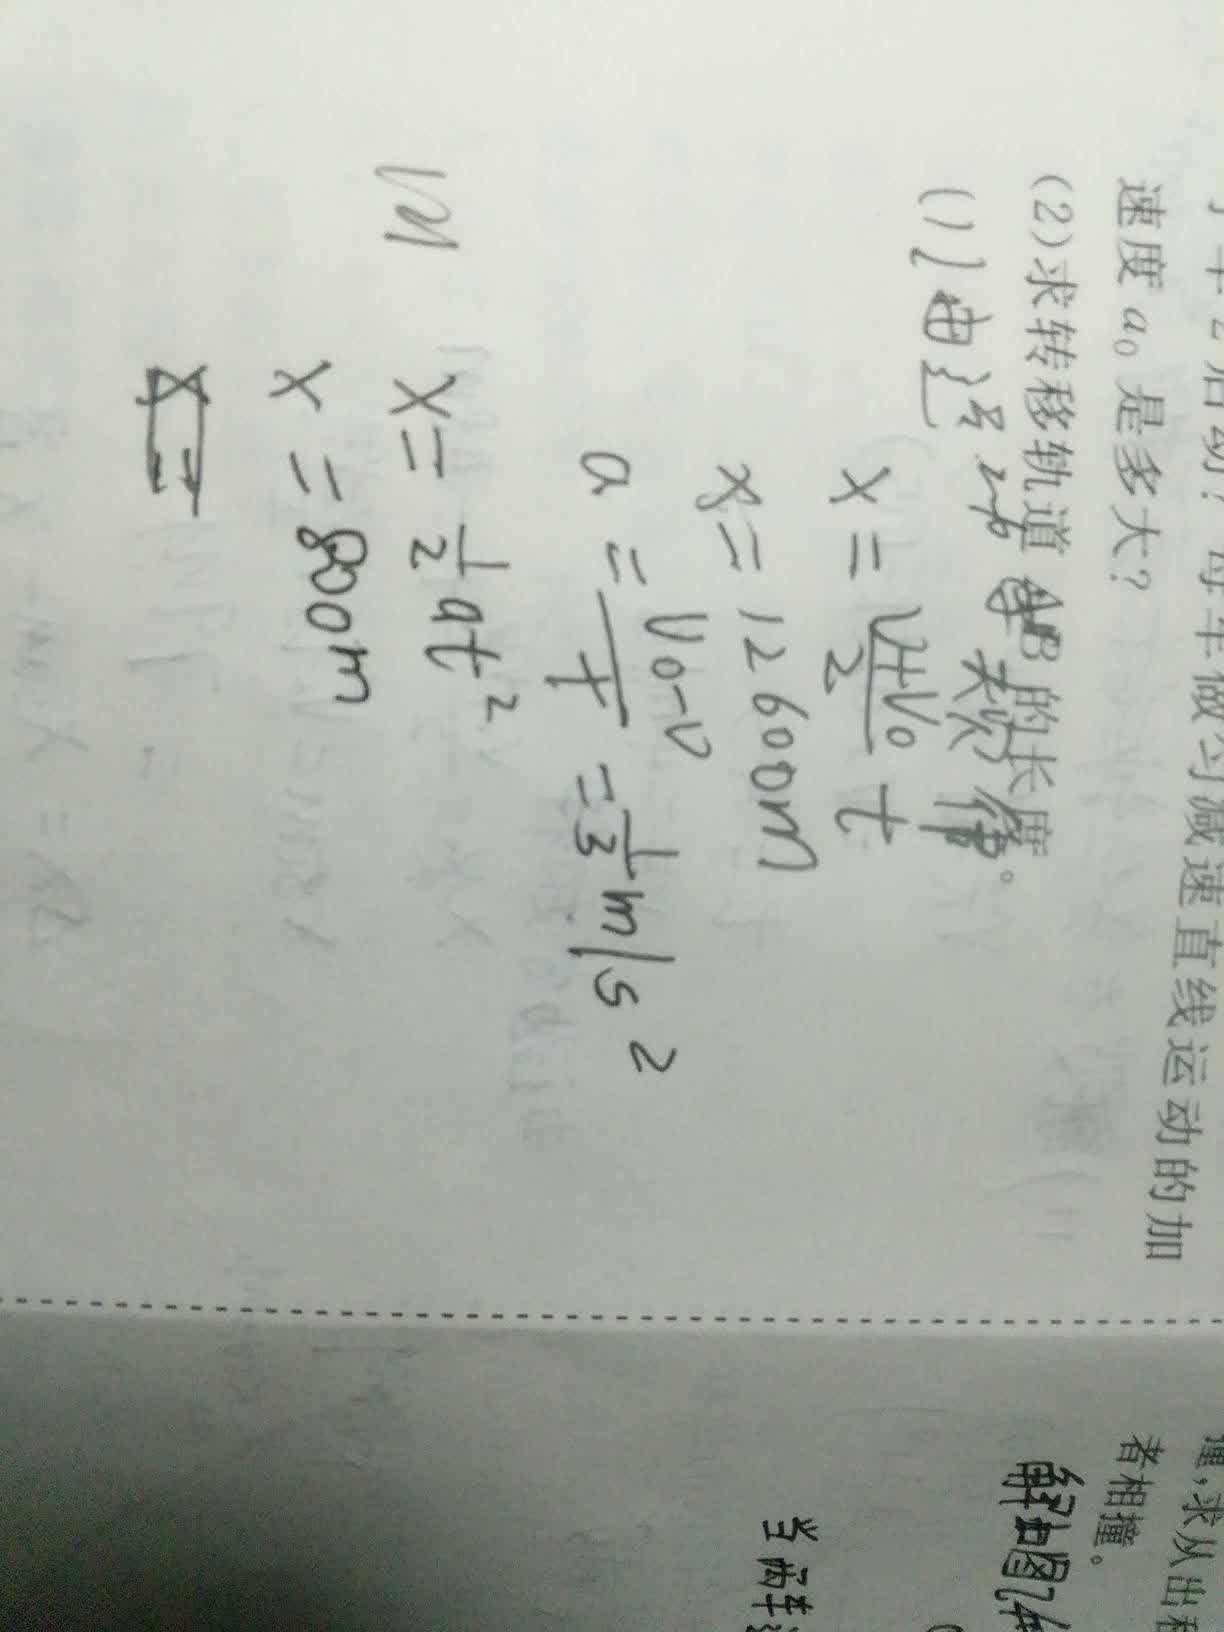 后动?每车做匀减速直线运动的加
速度 a₀ 是多大?
(2)求转移轨道 的长度。
(1)由运动
x = \frac{v+v₀}{2} t
x = 12600m
a = \frac{v₀-v}{t} = \frac{1}{3} m/s²
x = \frac{1}{2} at²
x = 800m
求从出
者相撞。
解由图
当两